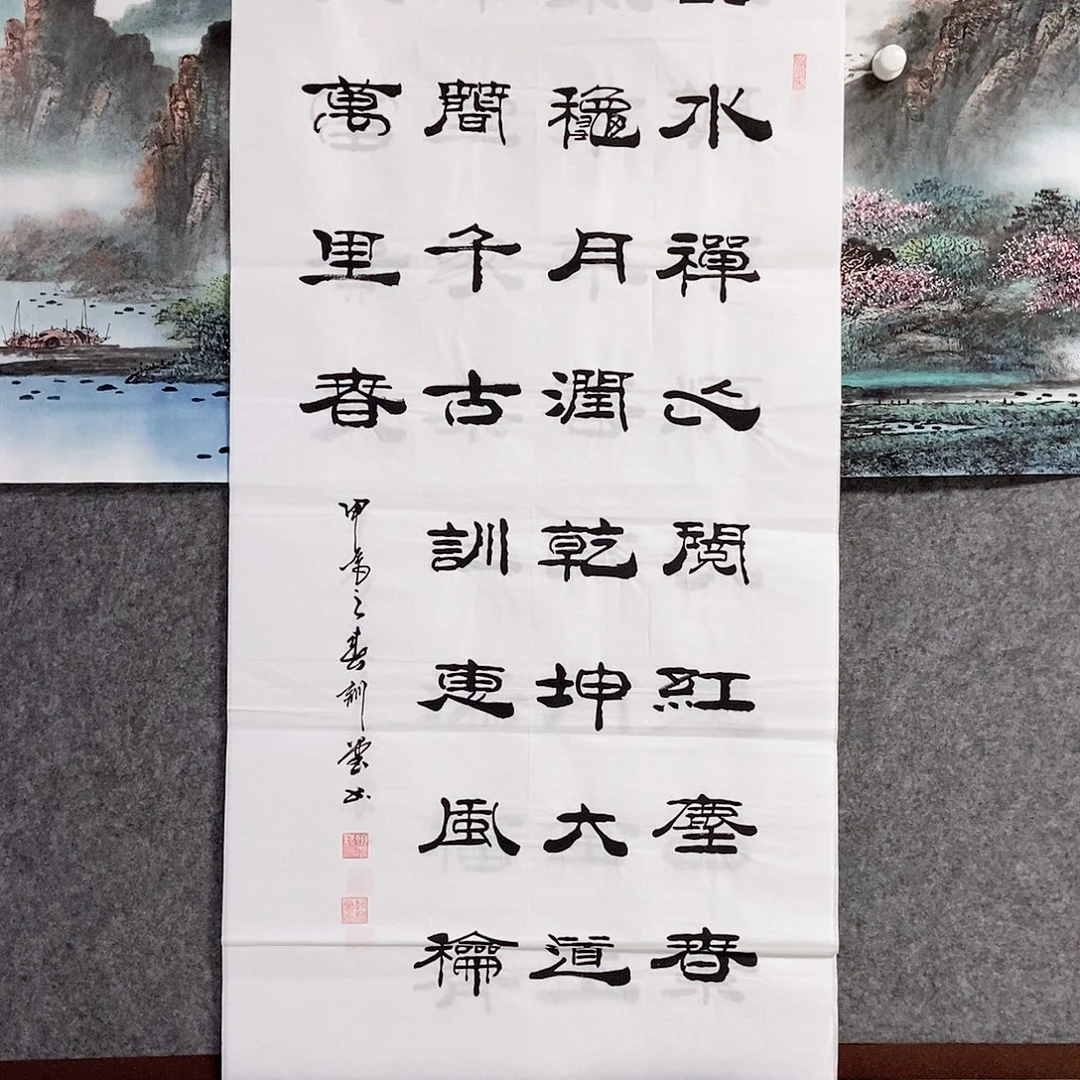 水禪心閱紅塵春
龝月潤乾坤大道
簡千古訓惠風龢
萬里春
甲辰之春訓書